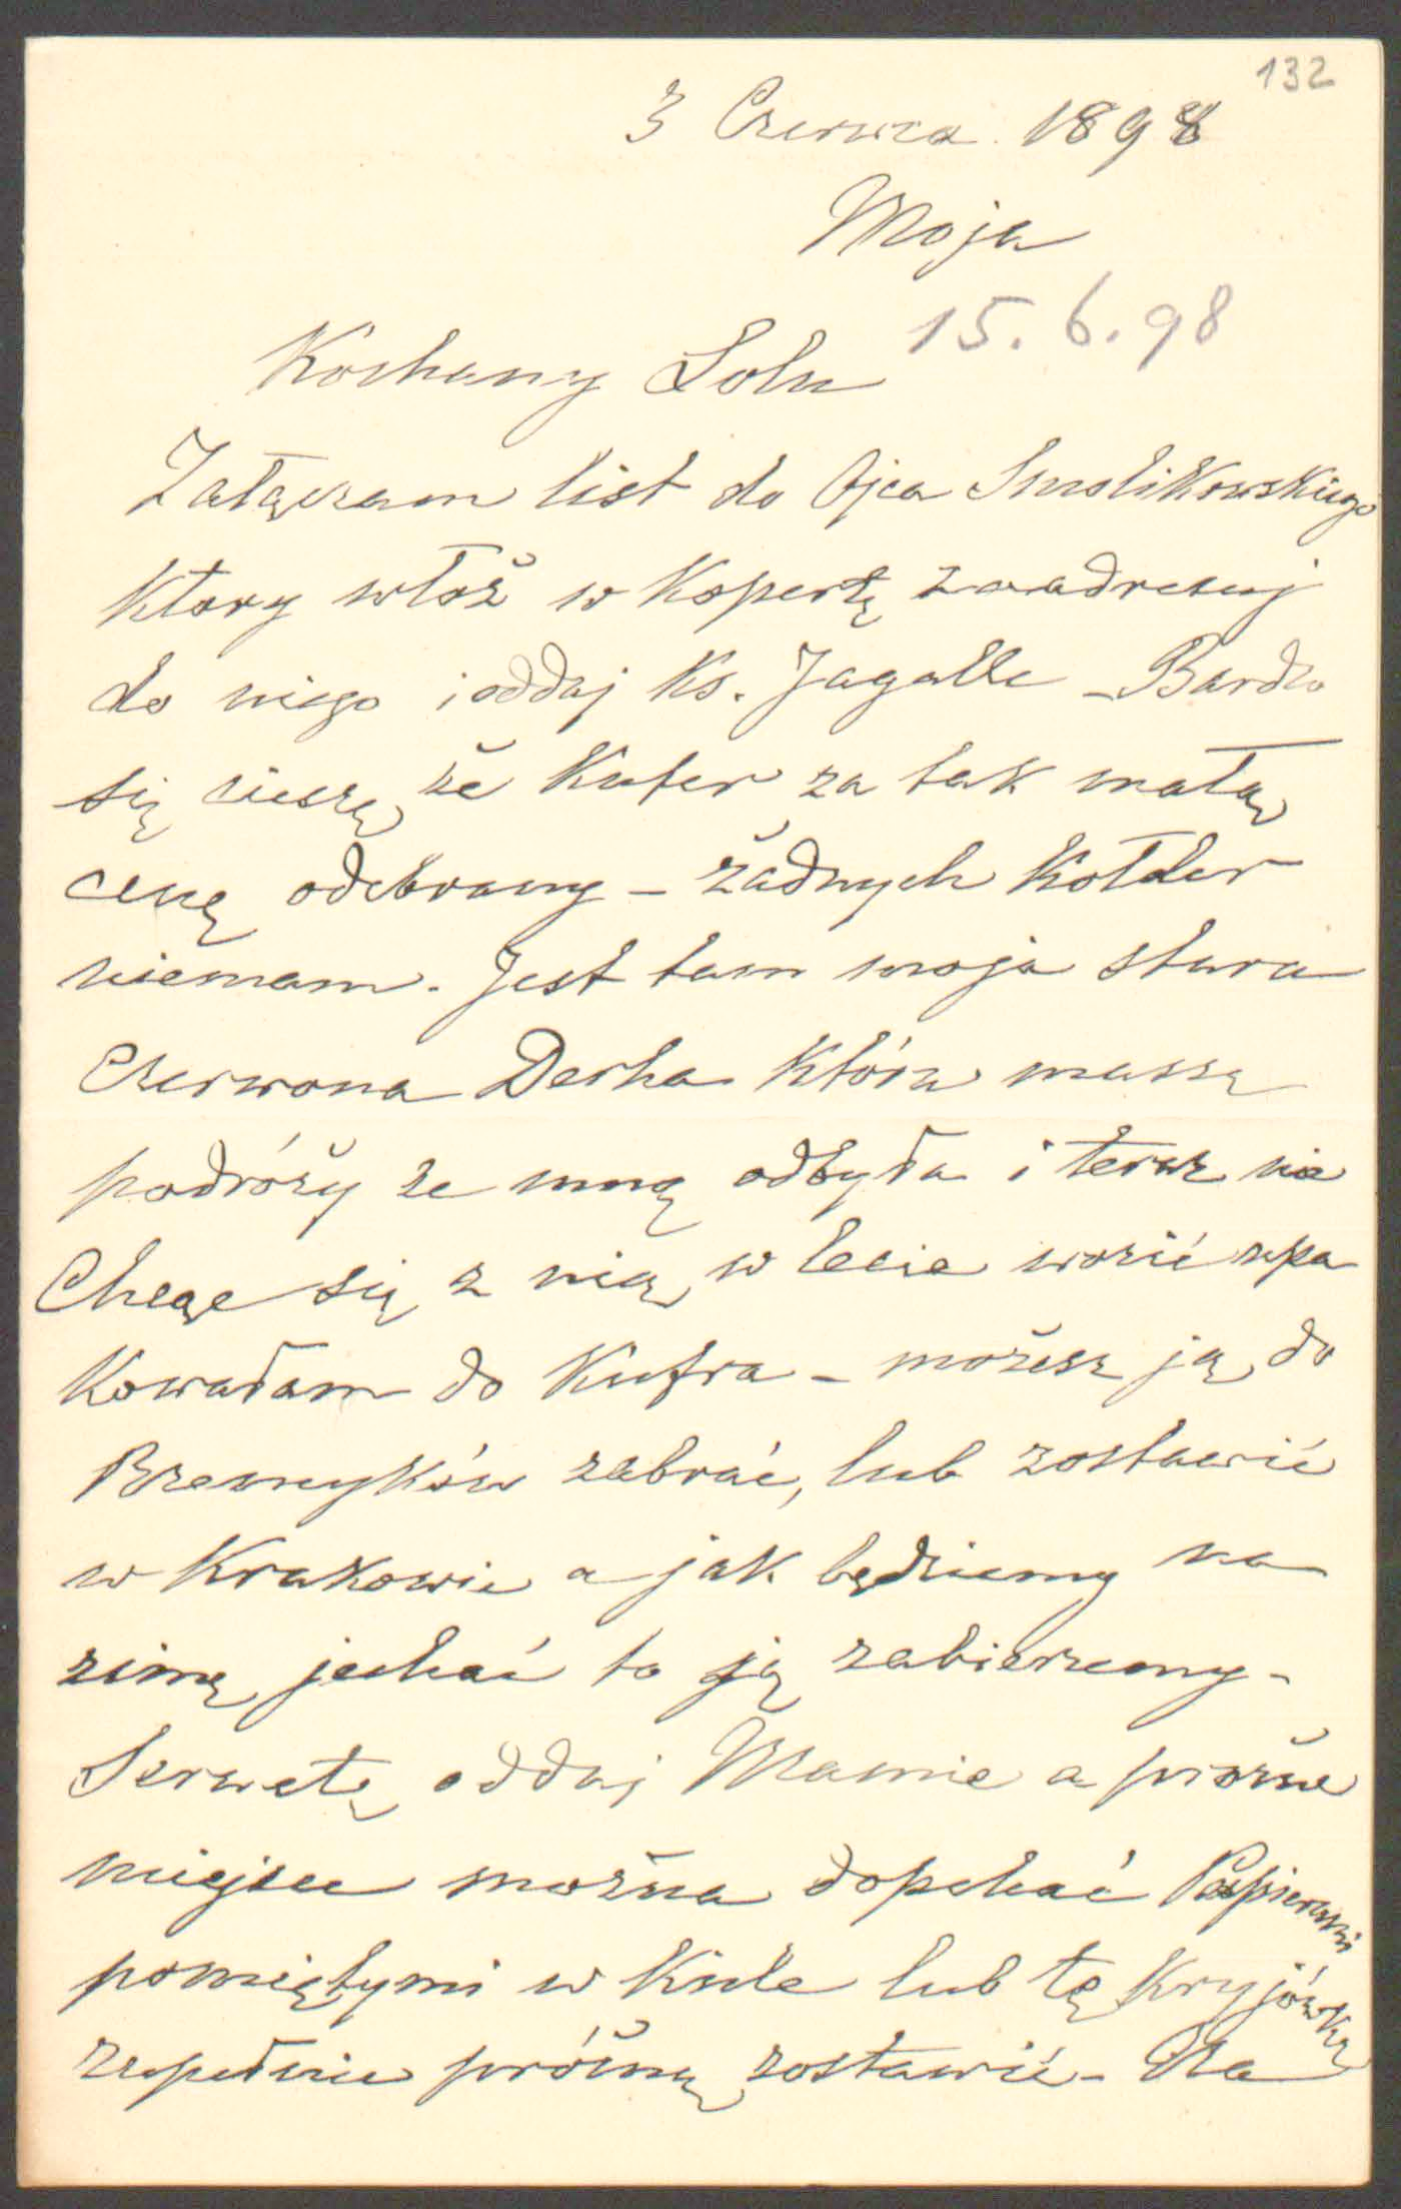 132
3 Czerwca 1898
Moja
15.6.98
Kochany Lolu
Załączam list do Ojca Smolikowskiego
który włóż w Kopertę zaadresuj
do niego i oddaj Ks. Jagalle – Bardzo
się cieszę że Kufer za tak małą
cenę odebrany – żadnych Kołder
niemam. Jest tam moja stara
Czerwona Derha która massę
podróży ze mną odbyła i teraz nie
Chcąc się z nią w lecie wozić upa
Kowałam do Kufra – możesz ją do
zabrać, lub zostawić
w Krakowie a jak będziemy na
zimę jechać to ją zabierzemy –
Serwetę oddaj Mamie a próżne
miejsce można dopchać Papierami
pomiętymi w Kule lub tę Kryjówkę
zupełnie próżną zostawić – Dla